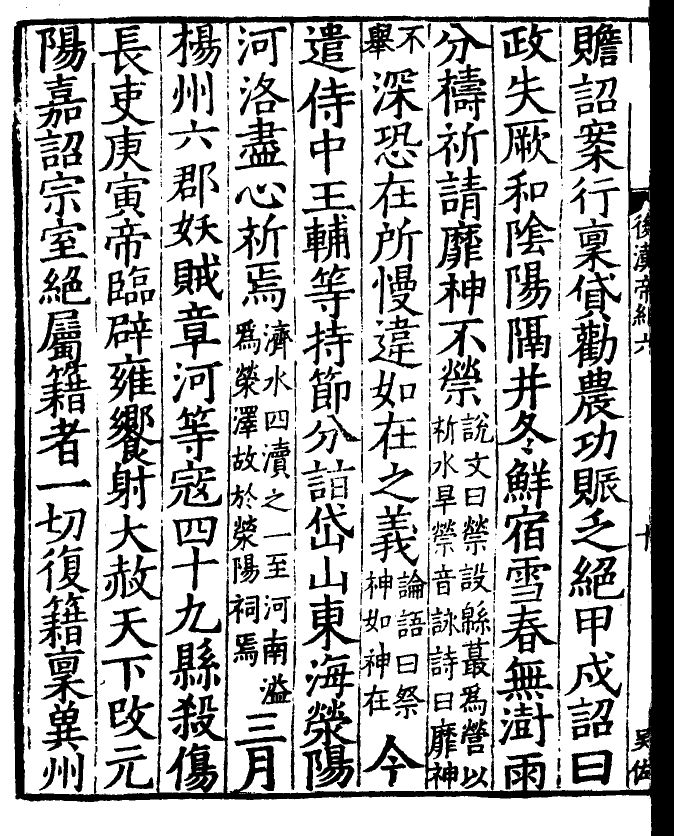 後漢帝紀六
贍詔案行稟貸勸農功賑乏絕甲戌詔曰
政失厥和陰陽隔井冬鮮宿雪春無澍雨
分禱祈請靡神不禜說文曰禜設緜蕝爲營以祈水旱禜音詠詩曰靡神
不舉深恐在所慢違如在之義論語曰祭神如神在今
遣侍中王輔等持節分詣岱山東海滎陽
河洛盡心祈焉濟水四瀆之一至河南溢爲滎澤故於滎陽祠焉三月
楊州六郡妖賊章河等寇四十九縣殺傷
長吏庚寅帝臨辟雍饗射大赦天下改元
陽嘉詔宗室絕屬籍者一切復籍稟冀州